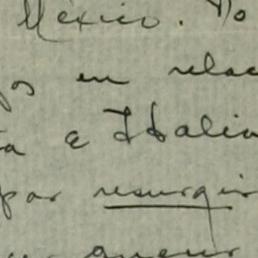 México. No
os en relac
a e Italia
por resurgir